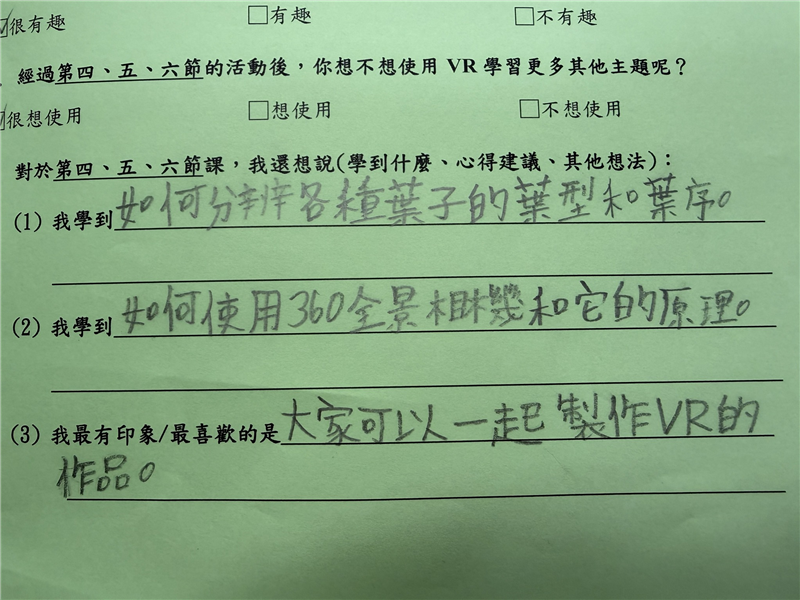 ☑很有趣 □有趣 □不有趣
經過第四、五、六節的活動後，你想不想使用 VR 學習更多其他主題呢？
☑很想使用 □想使用 □不想使用
對於第四、五、六節課，我還想說(學到什麼、心得建議、其他想法)：
(1) 我學到如何分辨各種葉子的葉型和葉序。
(2) 我學到如何使用360全景相機和它的原理。
(3) 我最有印象/最喜歡的是大家可以一起製作VR的
作品。